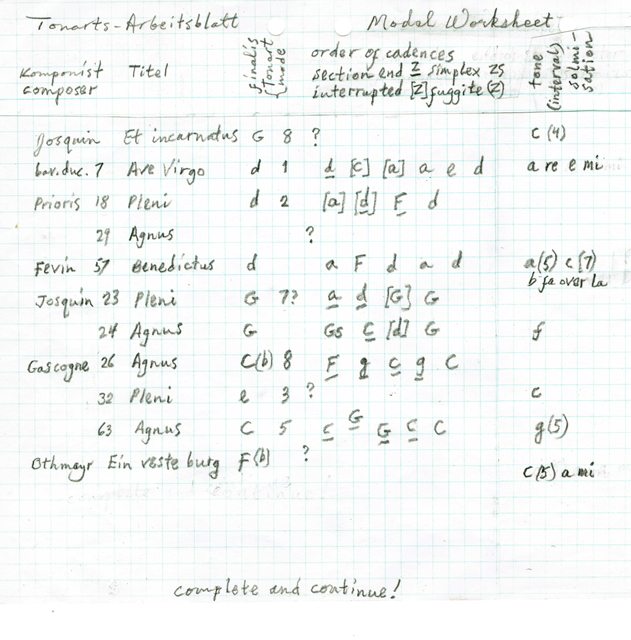 Tonarts-Arbeitsblatt Modal Worksheet
Komponist composer Titel Finalis Tonart mode order of cadences section end Z simplex ZS interrupted [Z] fuggite (Z) tone (interval) solmisation
Josquin Et incarnatus G 8 ? c (4)
bav.duc. 7 Ave Virgo d 1 d [c] [a] a e d a re e mi
Prioris 18 Pleni d 2 [a] [d] F d
29 Agnus ?
Fevin 57 Benedictus d a F d a d a(5) c (7)
b fa over la
Josquin 23 Pleni G 7? a d [G] G
24 Agnus G Gs c [d] G f
Gascogne 26 Agnus C(b) 8 F g c g C
32 Pleni e 3 ? c
63 Agnus C 5 c G G c C g(5)
Othmayr Ein veste burg F(b) ?
C(5) a mi
complete and continue!